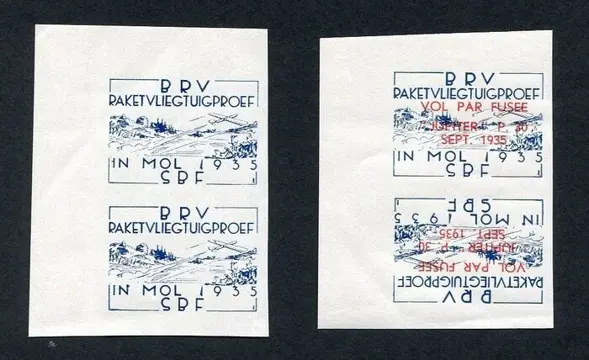 BRV
RAKETVLIEGTUIGPROEF
IN MOL 1935
SBF
BRV
RAKETVLIEGTUIGPROEF
IN MOL 1935
SBF
BRV
RAKETVLIEGTUIGPROEF
VOL PAR FUSEE
JUPITER - P. 30
SEPT. 1935
IN MOL 1935
SBF
SBF
IN MOL 1935
SEPT 1935
JUPITER - P. 30
VOL PAR FUSEE
RAKETVLIEGTUIGPROEF
BRV